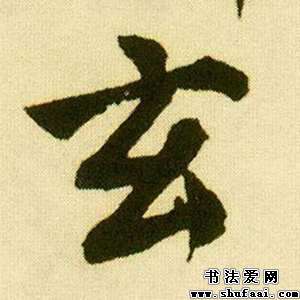 玄
书法爱网
www.shufaai.com